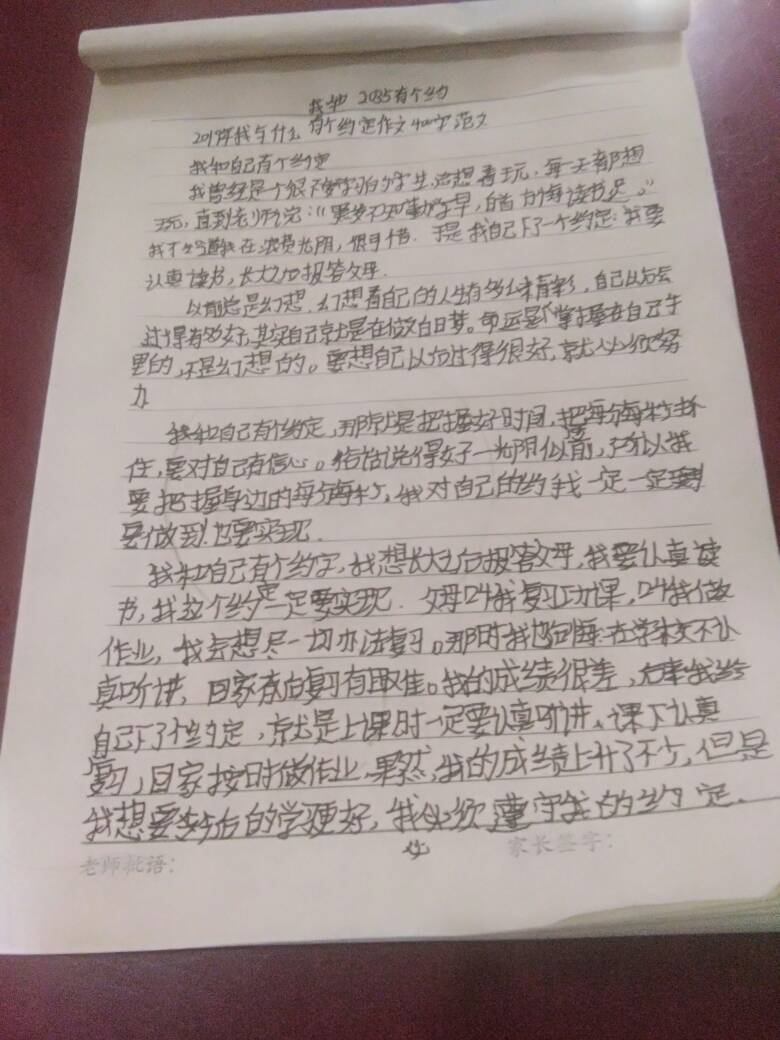 我和 2035有个约
2019年我与什么有个约定作文400字范文
我和自己有个约定
我曾经是一个很不爱学习的学生,总想着玩,每天都想
玩,直到老师说:“黑发不知勤学早,白首方悔读书迟。”
我才知道我在浪费光阴,很可惜.于是我自己下了一个约定:我要
认真读书,长大之后报答父母.
以前总是幻想,幻想着自己的人生有多么精彩,自己以后会
过得有多好,其实自己就是在做白日梦。命运是掌握在自己手
里的,不是幻想的。要想自己以后过得很好,就必须努
力
我和自己有个约定,那就是把握好时间,把每分每秒抓
住,要对自己有信心。俗话说得好一光阴似箭,所以我
要把握身边的每分每秒,我对自己的约我一定一定
要做到!也要实现.
我和自己有个约定,我想长大之后报答父母,我要认真读
书,我这个约定一定要实现.父母叫我复习功课,叫我做
作业,我会想尽一切办法复习。那时我也后悔在学校不认
真听讲,回家在复习有取佳。我的成绩很差,我给
自己下了个约定,就是上课时一定要认真听讲、课下认真
复习,回家按时做作业.果然,我的成绩上升了不少,但是
我想要以后的学更好,我必须遵守我的约定.
老师批语:
家长签字: